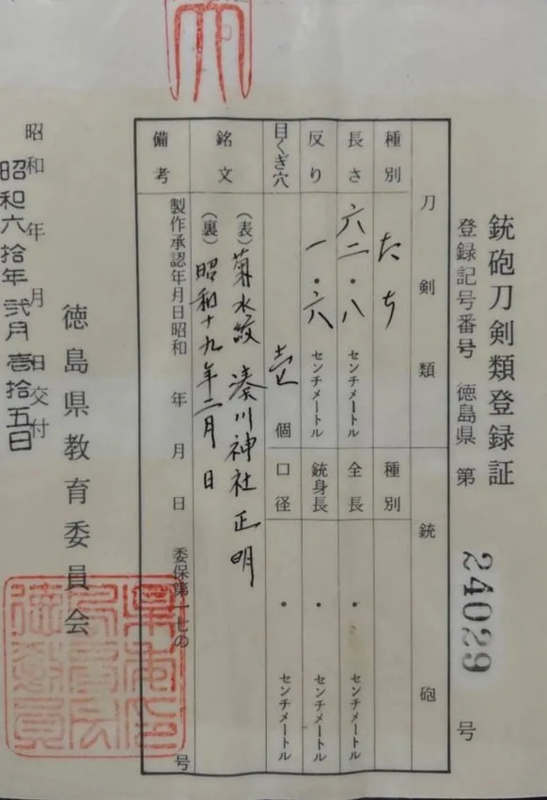 銃砲刀剣類登録証
登録記号番号 徳島県 第 24029 号
刀剣類 銃砲
種別 たち 種別
長さ 六二・八 センチメートル 全長 ・ センチメートル
反り 一・六 センチメートル 銃身長 ・ センチメートル
目くぎ穴 壱 個 口径 ・ センチメートル
銘文 (表) 菊水紋 湊川神社 正明
(裏) 昭和十九年二月 日
備考 製作承認年月日昭和 年 月 日 委保第一七の 号
徳島県教育委員会
昭和 年 月 日交付
昭和六拾年 弐月 壱拾五日